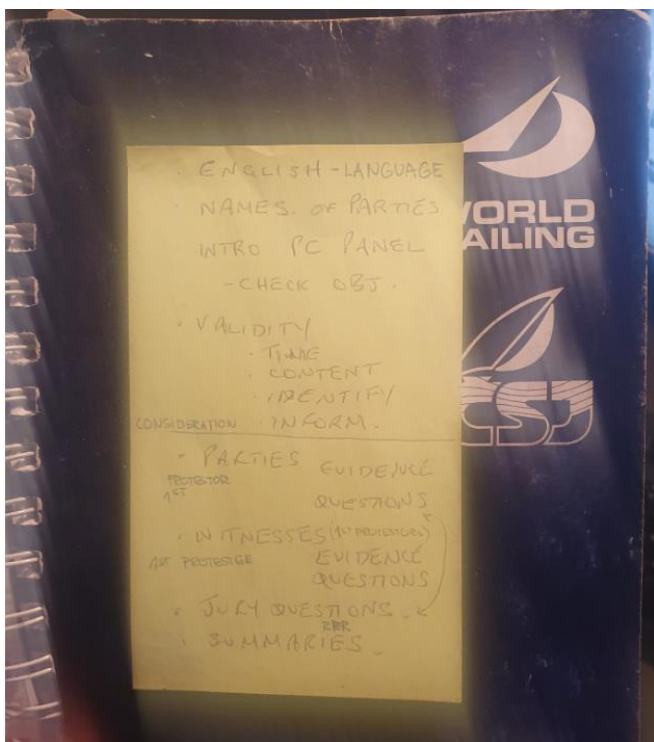 · ENGLISH - LANGUAGE
· NAMES. OF PARTIES
INTRO PC PANEL
- CHECK OBJ.
· VALIDITY
· TIME
· CONTENT
· IDENTIFY
CONSIDERATION · INFORM.
· PARTIES EVIDENCE
PROTESTOR
1ST
QUESTIONS
· WITNESSES
1ST EVIDENCE
QUESTIONS
· JURY QUESTIONS.
RRR
· SUMMARIES.
WORLD
SAILING